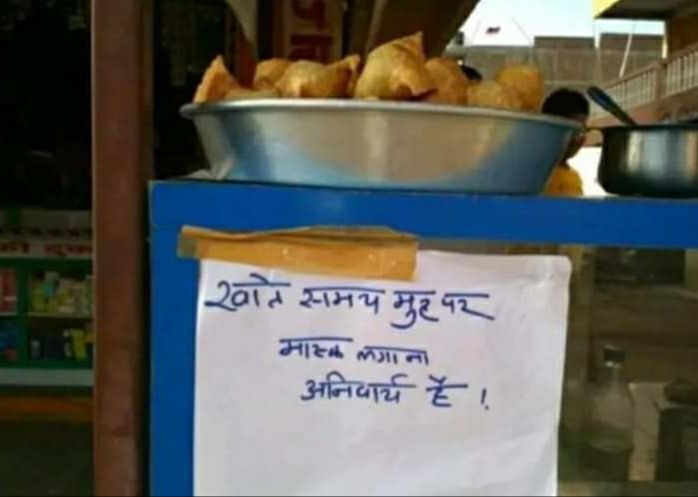 खाते समय मुह पर
मास्क लगाना
अनिवार्य है !